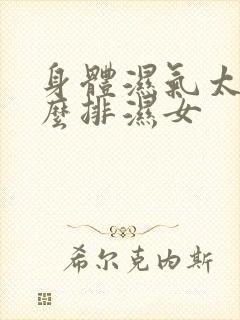 身體濕氣太
麼排濕女
希尔克内斯